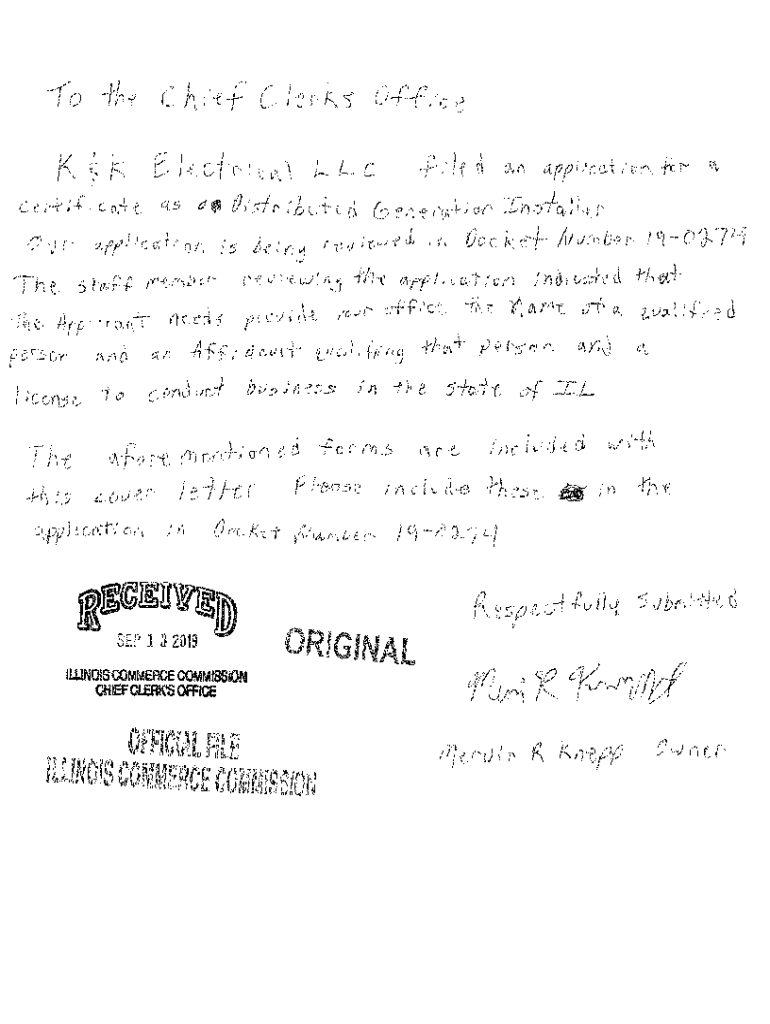 To the Chief Clerks Office
K & K Electrical LLC filed an application for a
certificate as a Distributed Generation Installer
Our application is being reviewed in Docket Number 19-0274
The staff member reviewing the application indicated that
the Applicant needs provide your office the name of a qualified
person and an Affidavit qualifing that person and a
license to conduct business in the state of IL
The aforementioned forms are included with
this cover letter Please include these in the
application in Docket Number 19-0274
Respectfully Submitted
RECEIVED
SEP 13 2019
ILLINOIS COMMERCE COMMISSION
CHIEF CLERK'S OFFICE
ORIGINAL
OFFICIAL FILE
ILLINOIS COMMERCE COMMISSION
Mervin R Knepp Owner